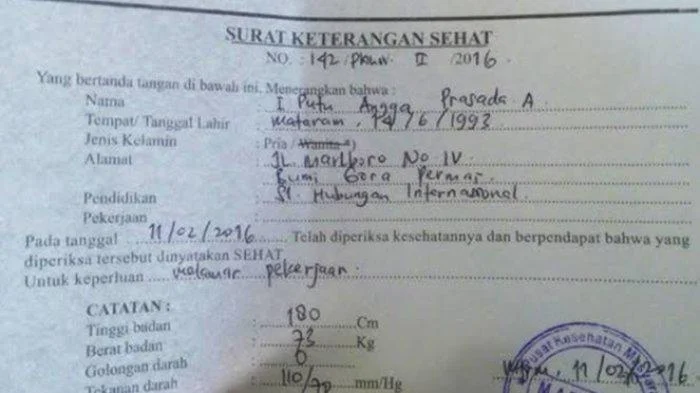 SURAT KETERANGAN SEHAT
NO. : 142 / Pkm.w. II /2016.
Yang bertanda tangan di bawah ini, Menerangkan bahwa :
Nama : I Putu Angga Prasada A
Tempat/ Tanggal Lahir : Mataram, 14/6/1993
Jenis Kelamin : Pria / Wanita *)
Alamat : JL. Marlboro No IV
Bumi Gora Permai.
Pendidikan : S1. Hubungan Internasional.
Pekerjaan :
Pada tanggal ....11/02/2016..... Telah diperiksa kesehatannya dan berpendapat bahwa yang
diperiksa tersebut dinyatakan SEHAT
Untuk keperluan .... melamar pekerjaan.
CATATAN :
Tinggi badan : 180 Cm
Berat badan : 73 Kg
Golongan darah : O
Tekanan darah : 110/70 mm/Hg
Pusat Kesehatan
11/02/2016